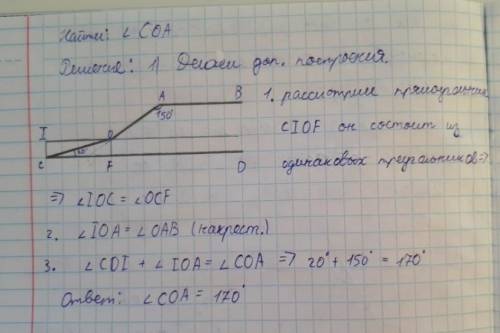 Найти: ∠COA
Решение: 1) Делаем доп. построения.
A B
150°
I O
C F D
1. рассмотрим прямоугольник
CIOF он состоит из
одинаковых треугольников ⇒
⇒ ∠IOC = ∠OCF
2. ∠IOA = ∠OAB (накрест.)
3. ∠COI + ∠IOA = ∠COA ⇒ 20° + 150° = 170°
Ответ: ∠COA = 170°